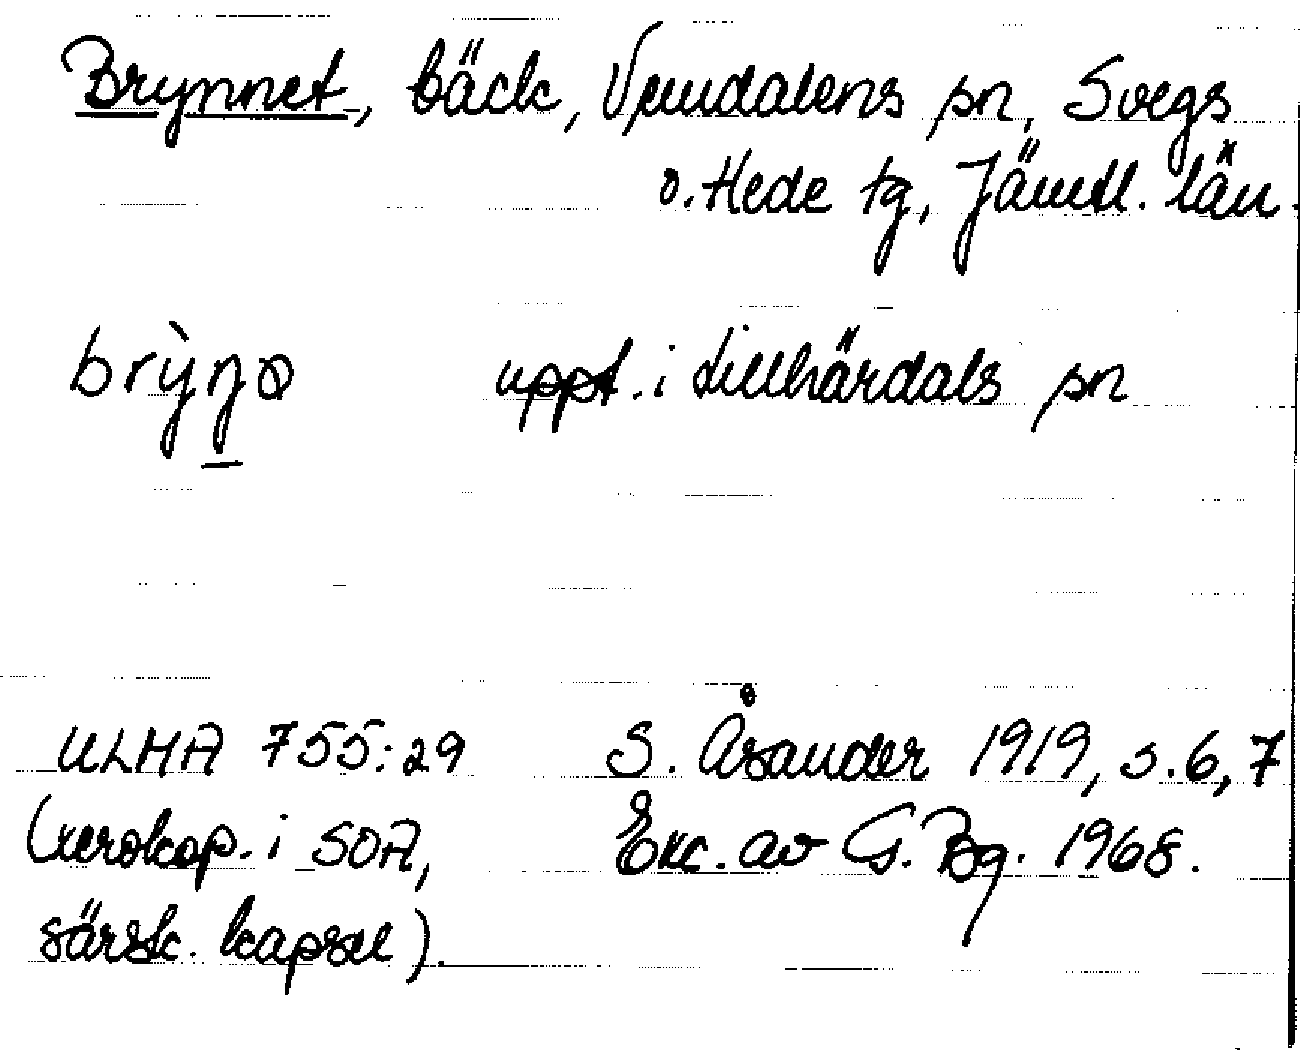 Brynnet, bäck, Vemdalens sn, Svegs
o. Hede tg, Jämtl. län.
brỳn̠ə uppt. i Lillhärdals sn
ULMA 755:29 S. Åsander 1919, s. 6, 7
(xerokop. i SOA, Exc. av G. Bg. 1968.
särsk. kapsel).